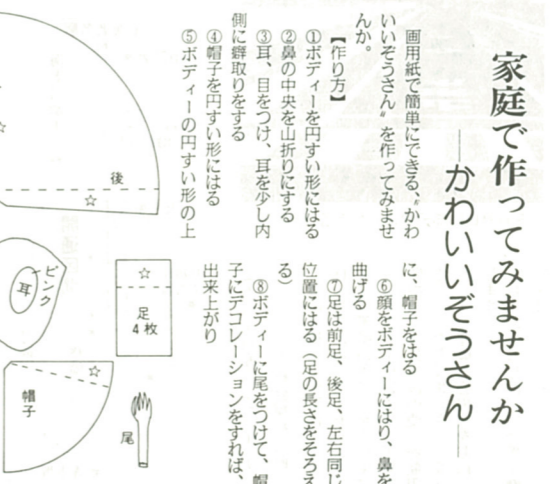 家庭で作ってみませんか
―かわいいぞうさん―
画用紙で簡単にできる、〝かわ
いいぞうさん〟を作ってみませ
んか。
【作り方】
①ボディーを円すい形にはる
②鼻の中央を山折りにする
③耳、目をつけ、耳を少し内
側に癖取りをする
④帽子を円すい形にはる
⑤ボディーの円すい形の上
に、帽子をはる
⑥顔をボディーにはり、鼻を
曲げる
⑦足は前足、後足、左右同じ
位置にはる（足の長さをそろえ
る）
⑧ボディーに尾をつけて、帽
子にデコレーションをすれば、
出来上がり
後
☆
☆
足
4枚
ピンク
耳
☆
帽子
尾